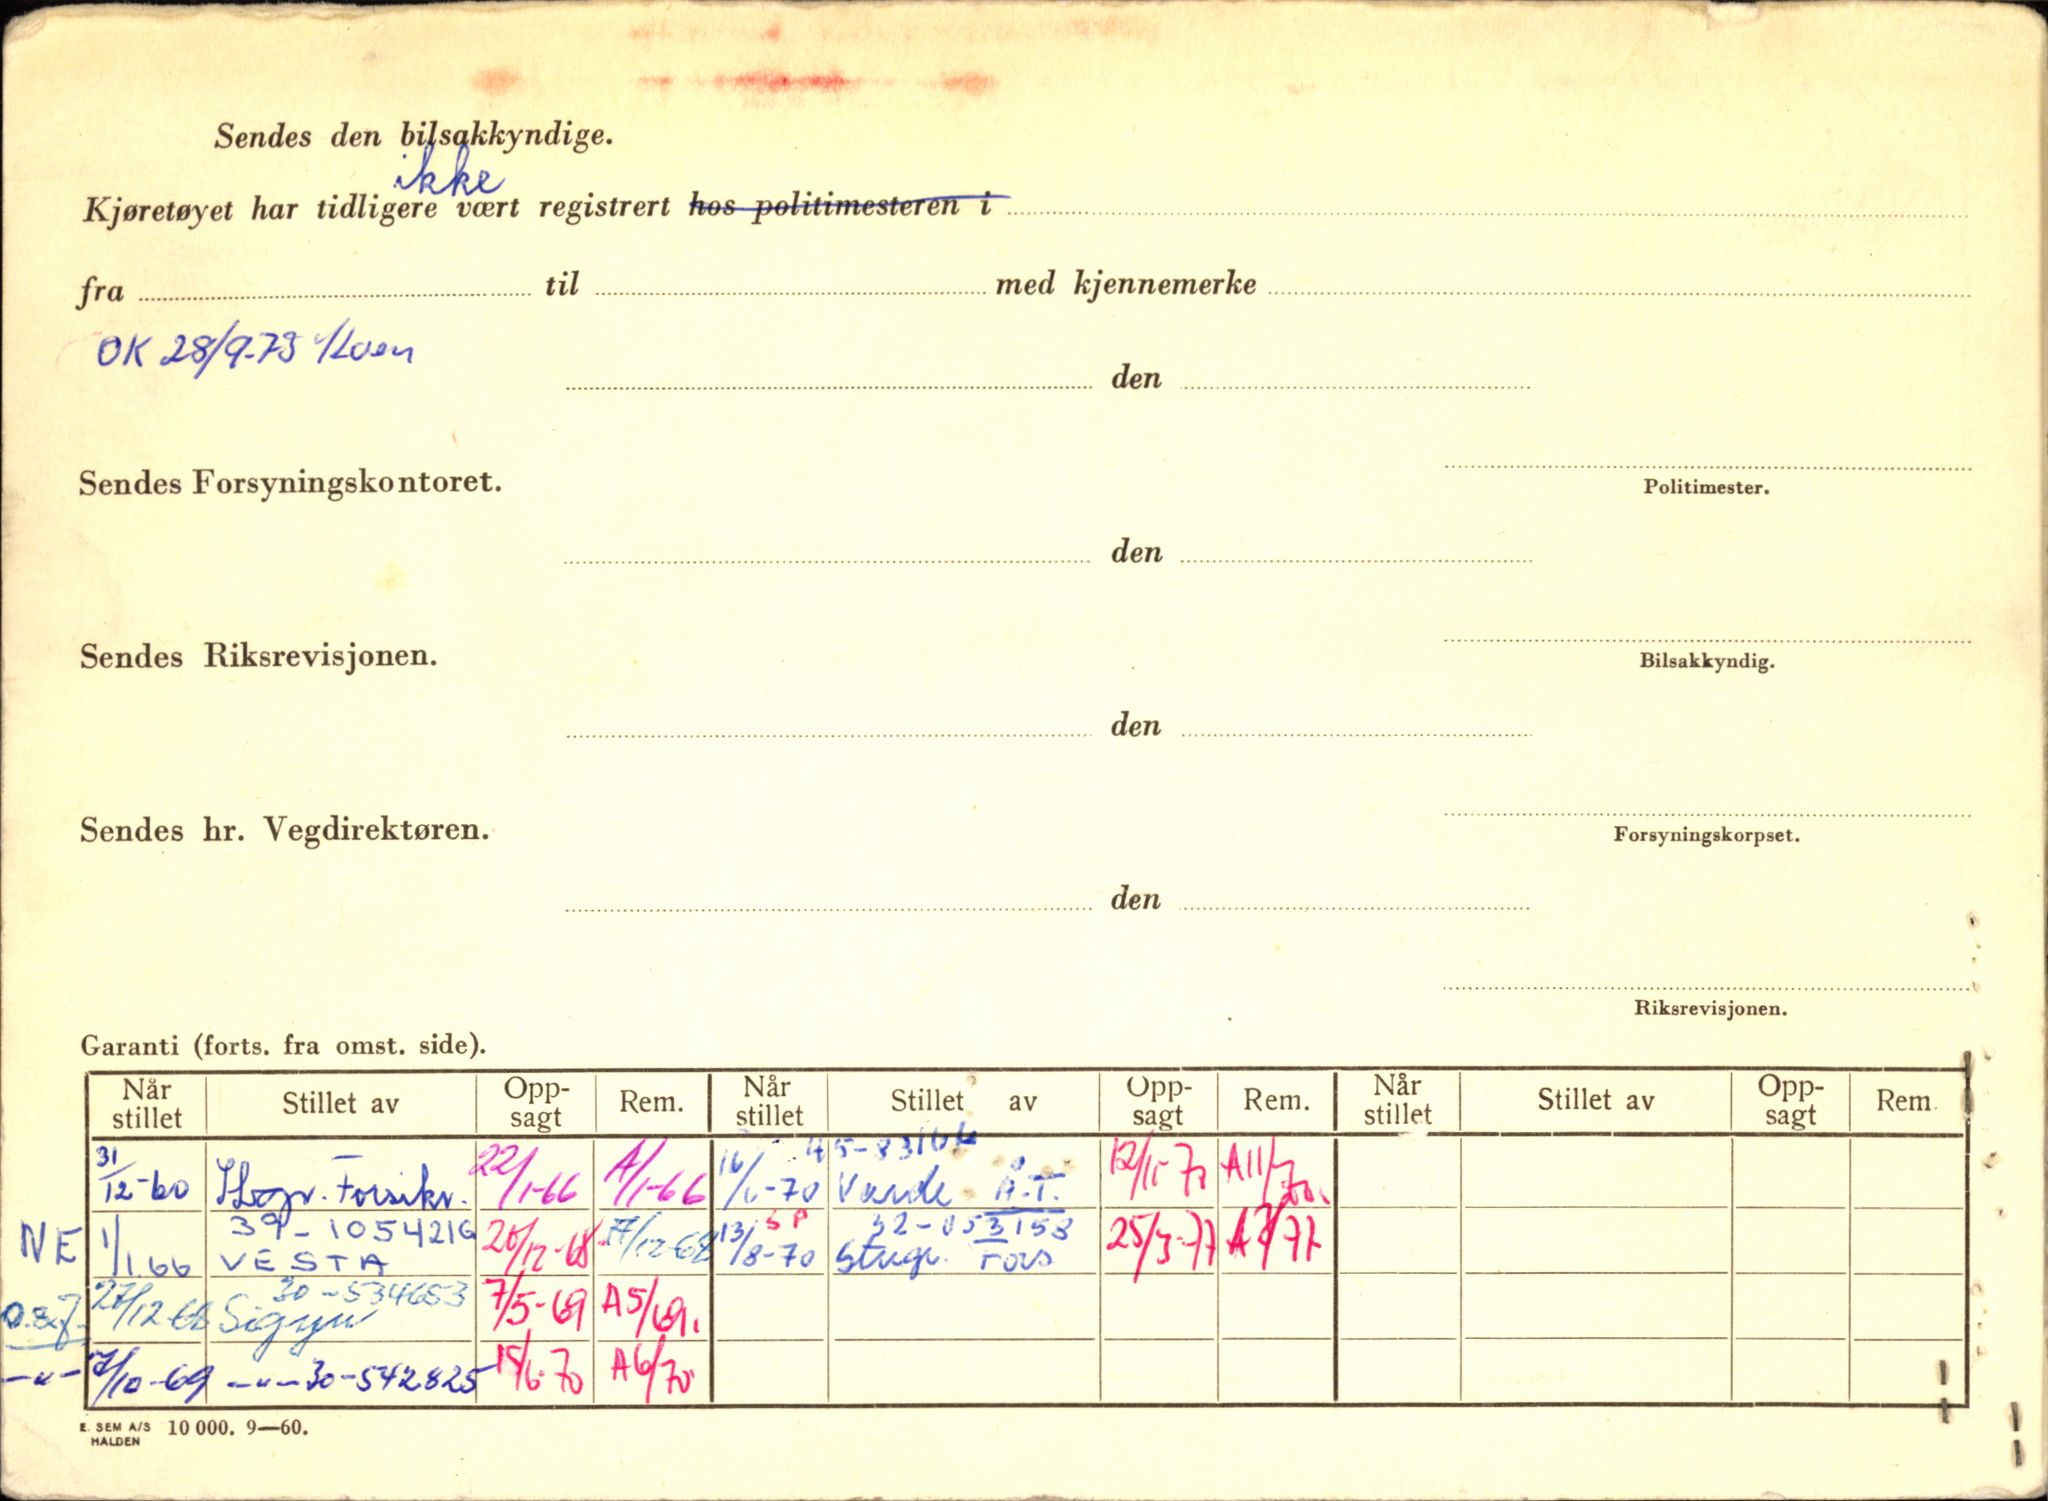 Sendes den bilsakkyndige.
ikke
Kjøretøyet har tidligere vært registrert hos politimesteren i
fra til med kjennemerke
OK 28/9-73
den
Sendes Forsyningskontoret.
Politimester.
den
Sendes Riksrevisjonen.
Bilsakkyndig.
den
Sendes hr. Vegdirektøren.
Forsyningskorpset.
den
Riksrevisjonen.
Garanti (forts. fra omst. side).
Når stillet Stillet av Opp-sagt Rem. Når stillet Stillet av Opp-sagt Rem. Når stillet Stillet av Opp-sagt Rem
31/12-60 Forsikr. 22/1-66 A/1-66 16/6-70 Varde A.T. A11/70.
NE 1/1.66 39-1054216 VESTA 20/12-68 13/8-70 SP 32-053153 Fors 25/3-77 A3/77
27/12-68 30-534653 Sigyn 7/5-69 A5/69.
-"- 7/10-69 -"- 30-542825 15/6-70 A6/70
E. SEM A/S HALDEN 10 000. 9—60.